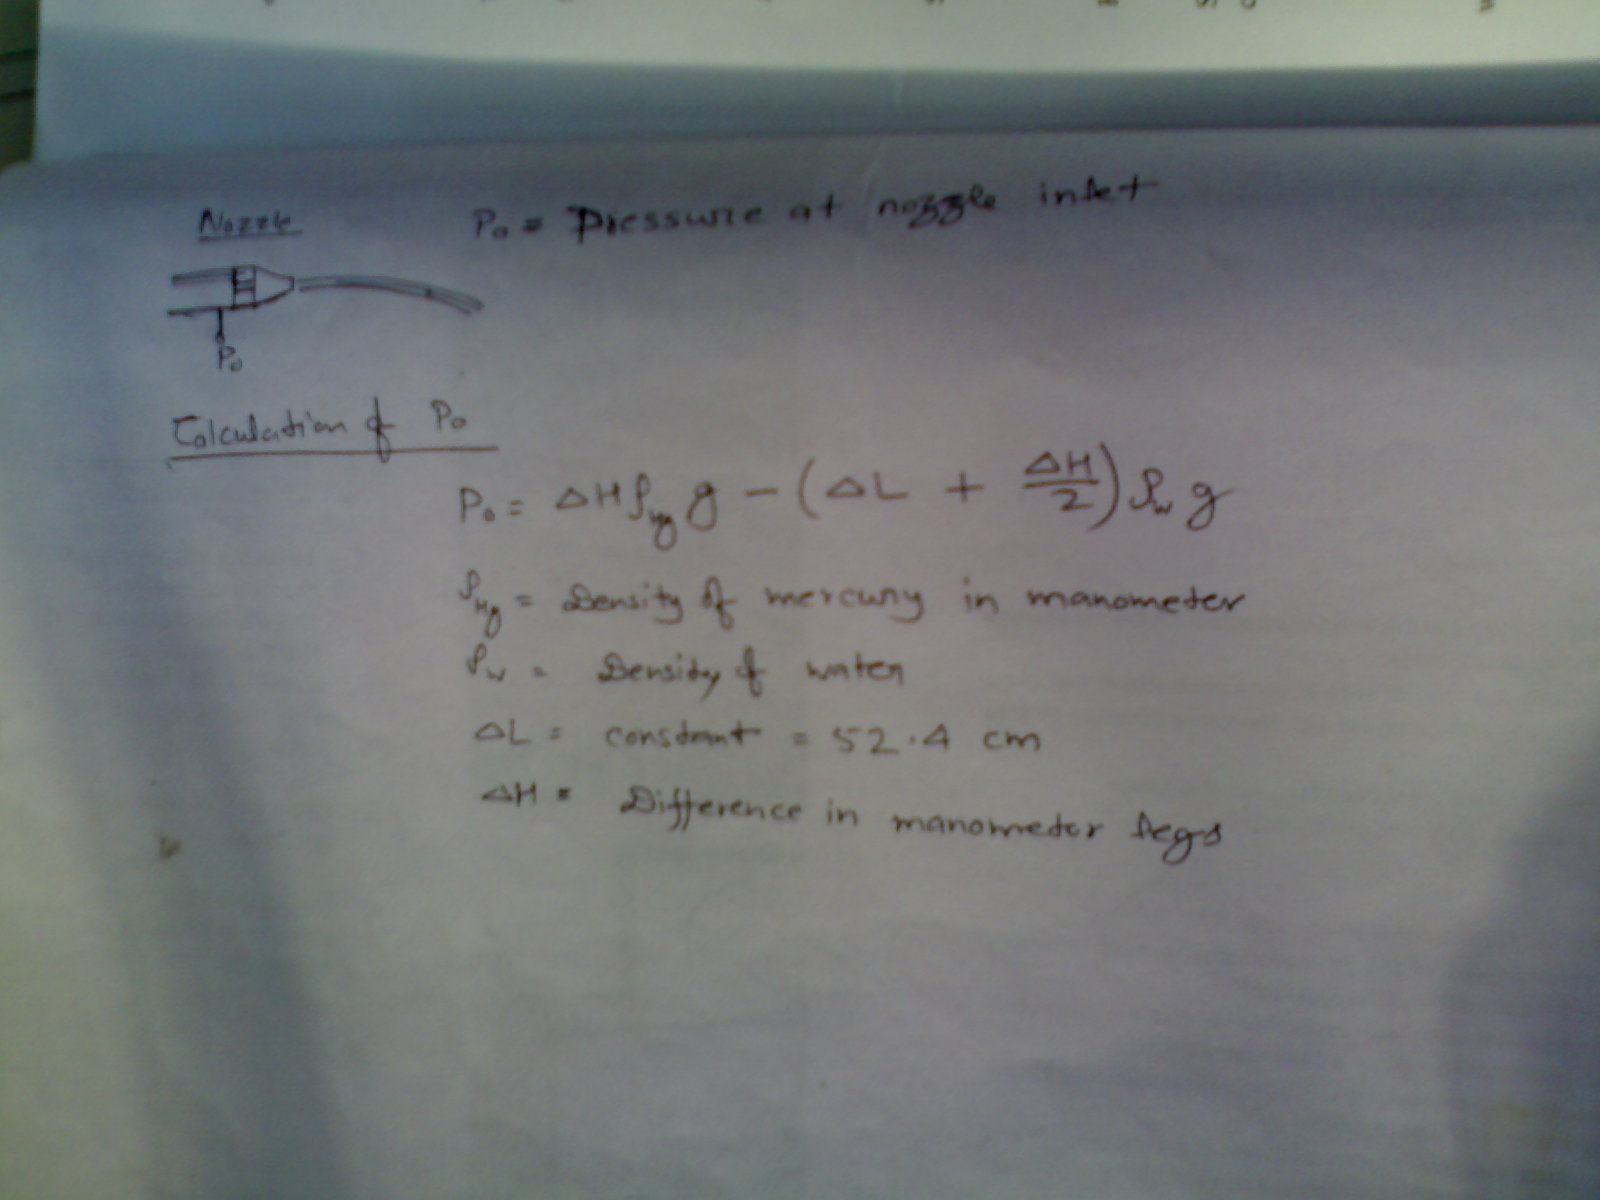 Nozzle
P₀ = Pressure at nozzle inlet
P₀
Calculation of P₀
P₀ = ΔHρHg g - (ΔL + ΔH/2) ρw g
ρHg = Density of mercury in manometer
ρw = Density of water
ΔL = constant = 52.4 cm
ΔH = Difference in manometer legs